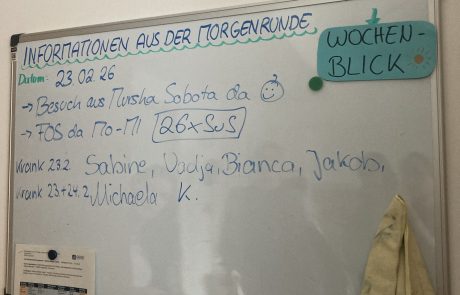 INFORMATIONEN AUS DER MORGENRUNDE
WOCHEN-
BLICK
Datum: 23.02.26
→ Besuch aus Mursha Sobota da
→ FOS da Mo-Mi 26xSuS
Krank 23.2. Sabine, Vadja, Bianca, Jakob,
Krank 23.+24.2. Michaela K.